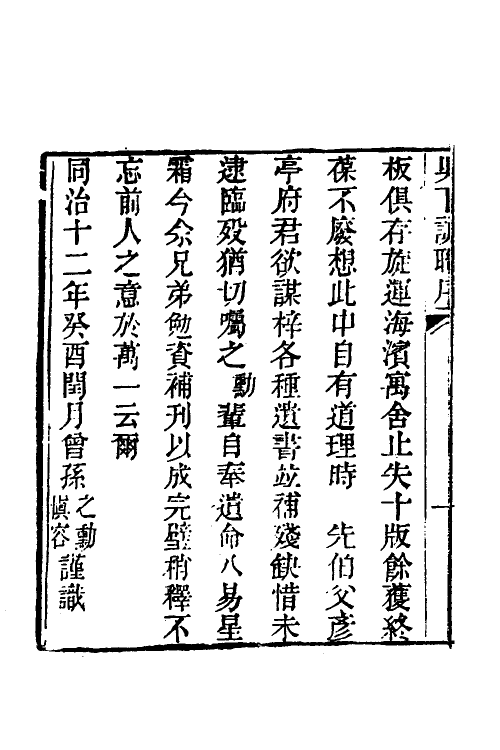 板俱存旋運海濱寓舍止失十版餘獲終
葆不廢想此中自有道理時 先伯父彥
亭府君欲謀梓各種遺書並補殘缺惜未
逮臨歿猶切囑之勳輩自奉遺命八易星
霜今余兄弟勉資補刊以成完璧稍釋不
忘前人之意於萬一云爾
同治十二年癸酉閏月曾孫之勳慎容謹識